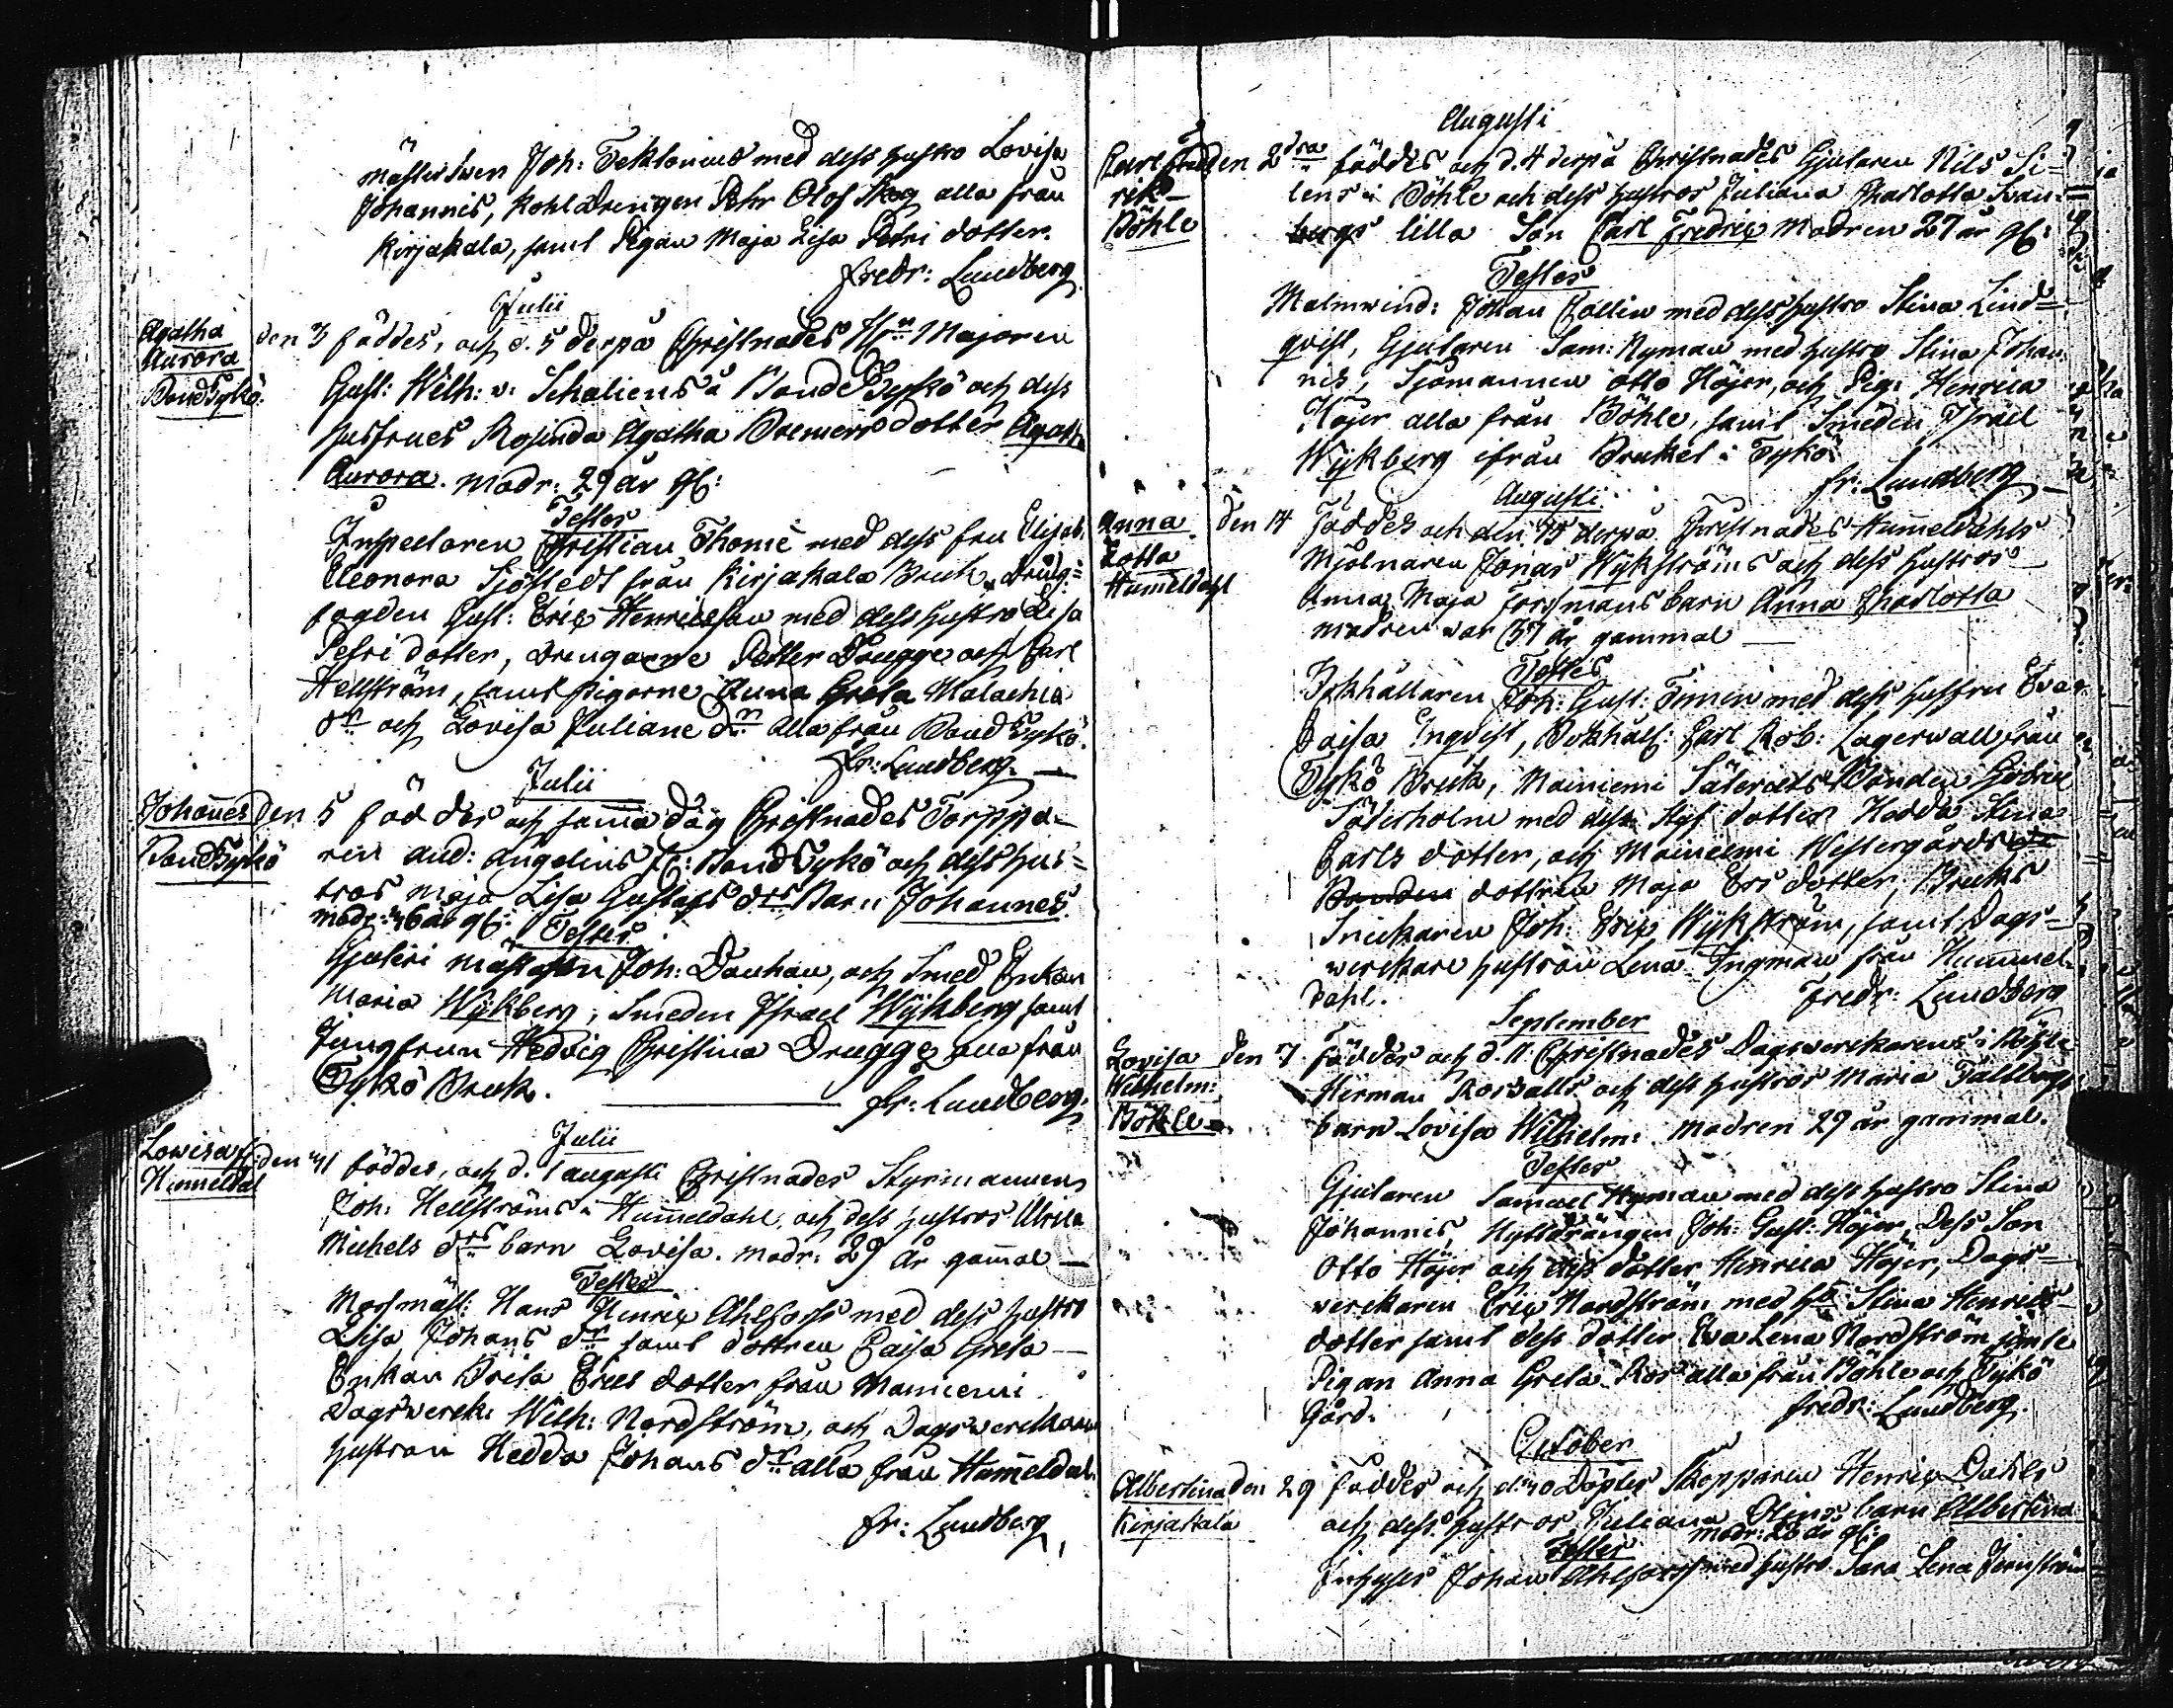 mästersven Joh: Teklonius med dess hustro Lovisa
Johannis, Kohldrengen Pehr Olof Skog alla från
Kirjakala, samt Pigan Maja Lisa Petri dotter.
Fredr: Lundberg
Julii
Agatha
Aurora
Band Tykö
den 3 föddes, och d. 5 derpå Christnades H:rn Majoren
Gust: Wilh: v: Schaliens å Band Tykö och dess
husfrues Rosinda Agatha Bremers dotter Agatha
Aurora. modr: 29 år gl:
Testes
Inspectoren Christian Thomé med dess fru Elisab.
Eleonora Sjöstedt från Kirjakala Bruk, dräng-
fogden Gust: Eric Henricsson med dess hustro Lisa
Petri dotter, drengarne Petter Drugge och Carl
Hellström, samt pigorne Anna Greta Malachia
d:r och Lovisa Juliane d:r alla från Band Tykö.
Fr: Lundberg.
Julii
Johannes
Band Tykö
den 5 föddes och samma dag Christnades Torppa-
ren And: Angelins fr: Band Tykö och dess hus-
tros Maja Lisa Gustafs d:rs Barn Johannes.
modr: 46 år gl: Testes
Gjuteri mästaren Joh: Dauhan, och Smed Enkan
Maria Wykberg, Smeden Israel Wykberg samt
Jungfrun Hedvig Christina Drugge alla från
Tykö Bruk.
Fr: Lundberg.
Julii
Lowisa
Hummeldal
den 31 föddes, och d. 1 augusti Christnades Styrmannens
Joh: Hellströms i Hummeldahl, och dess hustros Ulrica
Michels d:rs barn Lovisa. modr: 29 år gamal
Testes
Masmäst: Hans Henric Ahlfors med dess hustro
Lisa Johans d:r samt dottren Caisa Greta
Enkan Brita Erics dotter från Mainiemi
Dagswerck: Wilh: Nordström, och Dagswerckare
hustron Hedda Johans d:r alla från Hummeldal.
Fr: Lundberg
Augusti
Carl Fred
rik
Böhle
den 2dra föddes och d. 4 derpå Christnades Gjutaren Nils Si-
lens i Böhle och dess hustros Juliana Charlotta Svan-
bergs lilla Son Carl Fredric Modren 27 år gl:
Testes
Malmwind: Johan Collin med dess hustro Stina Lind-
qvist, Gjutaren Sam: Nyman med hustro Stina Johan
nis, Sjömannen Otto Höjer, och Pig: Henrica
Höjer alla från Böhle, samt Smeden Israel
Wykberg ifrån Bruket i Tykö
Fr: Lundberg
Augusti
Anna
Lotta
Hummeldahl
den 14 föddes och den 15 derpå Christnades Hummeldahls
Mjölnaren Jonas Wykströms och dess hustros
Anna Maja Forsmans barn Anna Charlotta
modren var 37 år gammal
Testes
Inhållaren Joh: Gust: Timin med dess husfru Eva
Caisa Ingvist, Bokhåll: Carl Rob: Lagerwall från
Tykö Bruk, Mainiemi Säteriets Bonden
Säterholm med dess Styf dotter Hedda Stina
Carls dotter, och Mainiemi Westergårds
Bonden dottren Maja Ers dotter, Bruks
Snickaren Joh: Eric Wykström, samt Dags-
werckare hustrun Lena Ingman från Hummel-
dahl.
Fredr: Lundberg
September
Lovisa
Wilhelm:
Böhle
den 7 föddes och d. 11 Christnades Dagswerckarens i Böhle
Herman Rosvalls och dess hustros Maria Talbergs
barn Lovisa Wilhelm: Modren 29 år gammal.
Testes
Gjutaren Samuel Nyman med dess hustro Stina
Johannis, Hyttdrängen Joh: Gust: Höjer, Dess Son
Otto Höjer och dess dotter Henrica Höjer, Dags-
werckaren Eric Nordström med h:o Stina Henrics
dotter samt dess dotter Eva Lena Nordström jemte
Pigan Anna Greta Ros alla från Böhle och Tykö
Gård.
Fredr: Lundberg.
October
Albertina
Kirjakala
den 29 föddes och d: 30 Döptes Skepparen Henric
och dess hustros Juliana barn Albertina
modr: 28 år gl:
Testes
Inhyses Johan Ahlfors med hustro Sara Lena Jernström